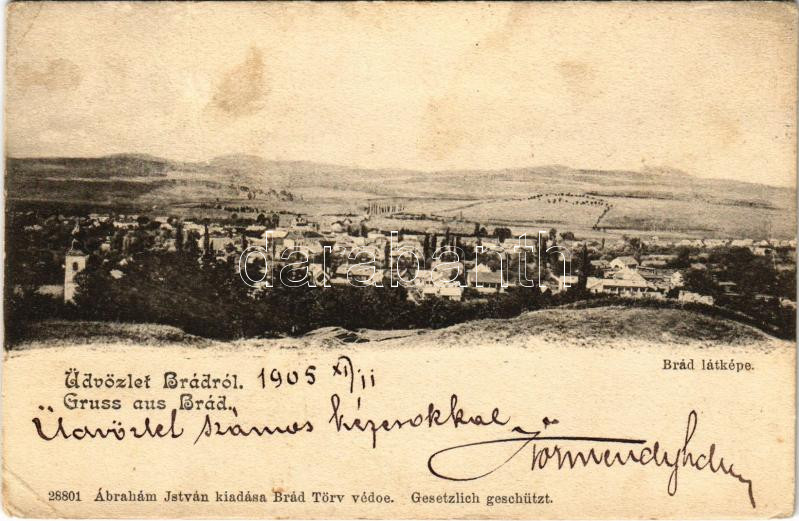 darabanth.com
Brád látképe.
Üdvözlet Brádról. 1905 XI/11
Gruss aus Brád.
Üdvözlet számos kézcsókkal
28801 Ábrahám Jstván kiadása Brád Törv védve. Gesetzlich geschützt.